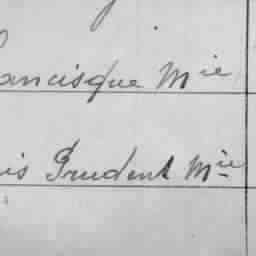 ancisque Mie
is Prudent Mie